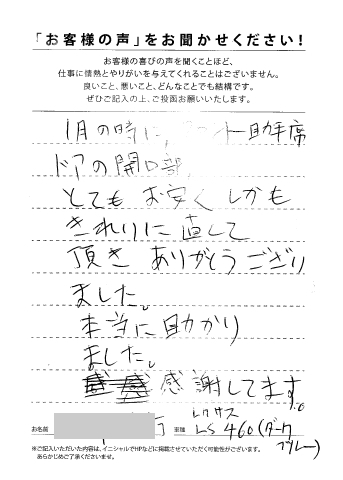 「お客様の声」をお聞かせください！
お客様の喜びの声を聞くことほど、
仕事に情熱とやりがいを与えてくれることはございません。
良いこと、悪いこと、どんなことでも結構です。
ぜひご記入の上、ご投函お願いいたします。
1月の時に、 ト助手席
ドアの開口部
とても お安く しかも
きれいに 直して
頂き ありがとうございり
ました。
本当に助かり
ました。
感謝してます。
お名前 車種 レクサス LS460(ダーク
グレー)
※ご記入いただいた内容は、イニシャルでHPなどに掲載させていただく可能性がございます。
あらかじめご了承くださいませ。